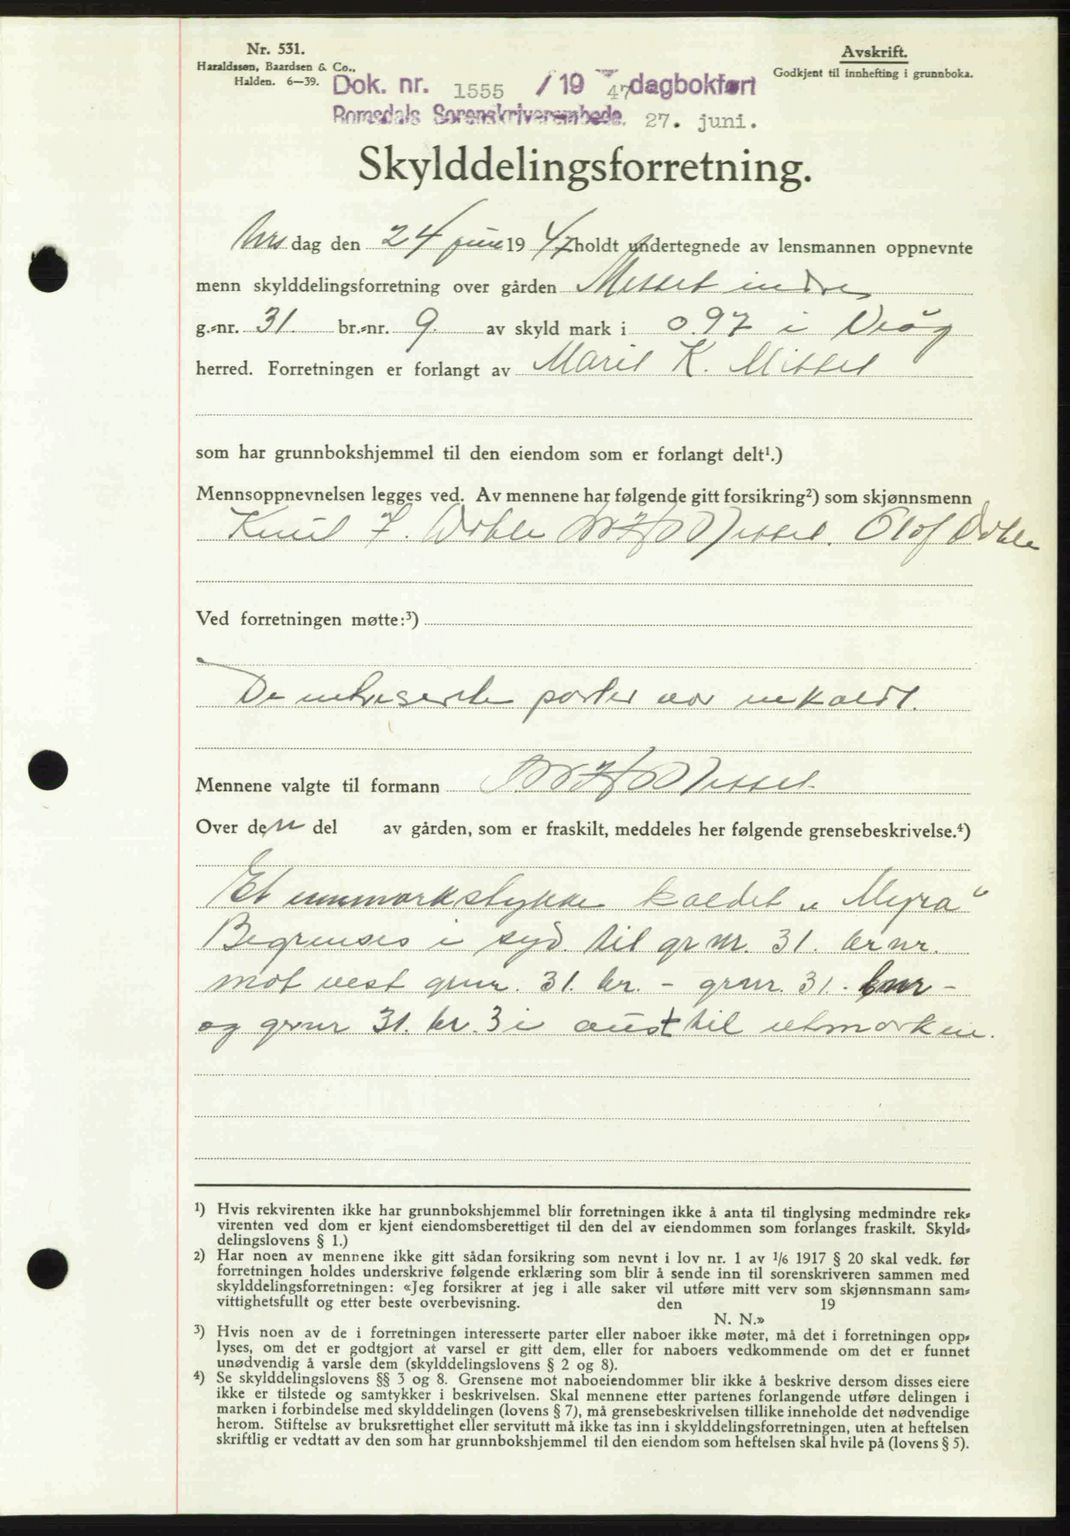 Nr. 531.
Haraldssen, Baardsen & Co.,
Halden. 6—39.
Avskrift.
Godkjent til innhefting i grunnboka.
Dok. nr. 1555 / 19 47 dagbokført
Romsdals Sorenskriverembede. 27. juni.
Skylddelingsforretning.
dag den 24 juni 19 47 holdt undertegnede av lensmannen oppnevnte
menn skylddelingsforretning over gården Misset indre
g.-nr. 31. br.-nr. 9. av skyld mark i 0.97 i Vrøg
herred. Forretningen er forlangt av Marit K. Misset
som har grunnbokshjemmel til den eiendom som er forlangt delt¹.)
Mennsoppnevnelsen legges ved. Av mennene har følgende gitt forsikring²) som skjønnsmenn
Knut Misset. Olof
Ved forretningen møtte:³)
De interserte parter var inkaldt.
Mennene valgte til formann Misset
Over den del av gården, som er fraskilt, meddeles her følgende grensebeskrivelse.⁴)
Et innmarkstykke kaldet „Myra“
Begrenses i syd til gr nr. 31. br nr.
mot vest grnr. 31. br. – grnr. 31. bnr –
og grnr 31. br. 3 i aust til utmarken.
¹) Hvis rekvirenten ikke har grunnbokshjemmel blir forretningen ikke å anta til tinglysing medmindre rek-
virenten ved dom er kjent eiendomsberettiget til den del av eiendommen som forlanges fraskilt. Skyld-
delingslovens § 1.)
²) Har noen av mennene ikke gitt sådan forsikring som nevnt i lov nr. 1 av ¹/₆ 1917 § 20 skal vedk. før
forretningen holdes underskrive følgende erklæring som blir å sende inn til sorenskriveren sammen med
skylddelingsforretningen: «Jeg forsikrer at jeg i alle saker vil utføre mitt verv som skjønnsmann sam-
vittighetsfullt og etter beste overbevisning. den 19
N. N.»
³) Hvis noen av de i forretningen interesserte parter eller naboer ikke møter, må det i forretningen opp-
lyses, om det er godtgjort at varsel er gitt dem, eller for naboers vedkommende om det er funnet
unødvendig å varsle dem (skylddelingslovens § 2 og 8).
⁴) Se skylddelingslovens §§ 3 og 8. Grensene mot naboeiendommer blir ikke å beskrive dersom disses eiere
ikke er tilstede og samtykker i beskrivelsen. Skal mennene etter partenes forlangende utføre delingen i
marken i forbindelse med skylddelingen (lovens § 7), må grensebeskrivelsen tillike inneholde det nødvendige
herom. Stiftelse av bruksrettighet eller servitutt må ikke tas inn i skylddelingsforretningen, uten at heftelsen
skriftlig er vedtatt av den som har grunnbokshjemmel til den eiendom som heftelsen skal hvile på (lovens § 5).